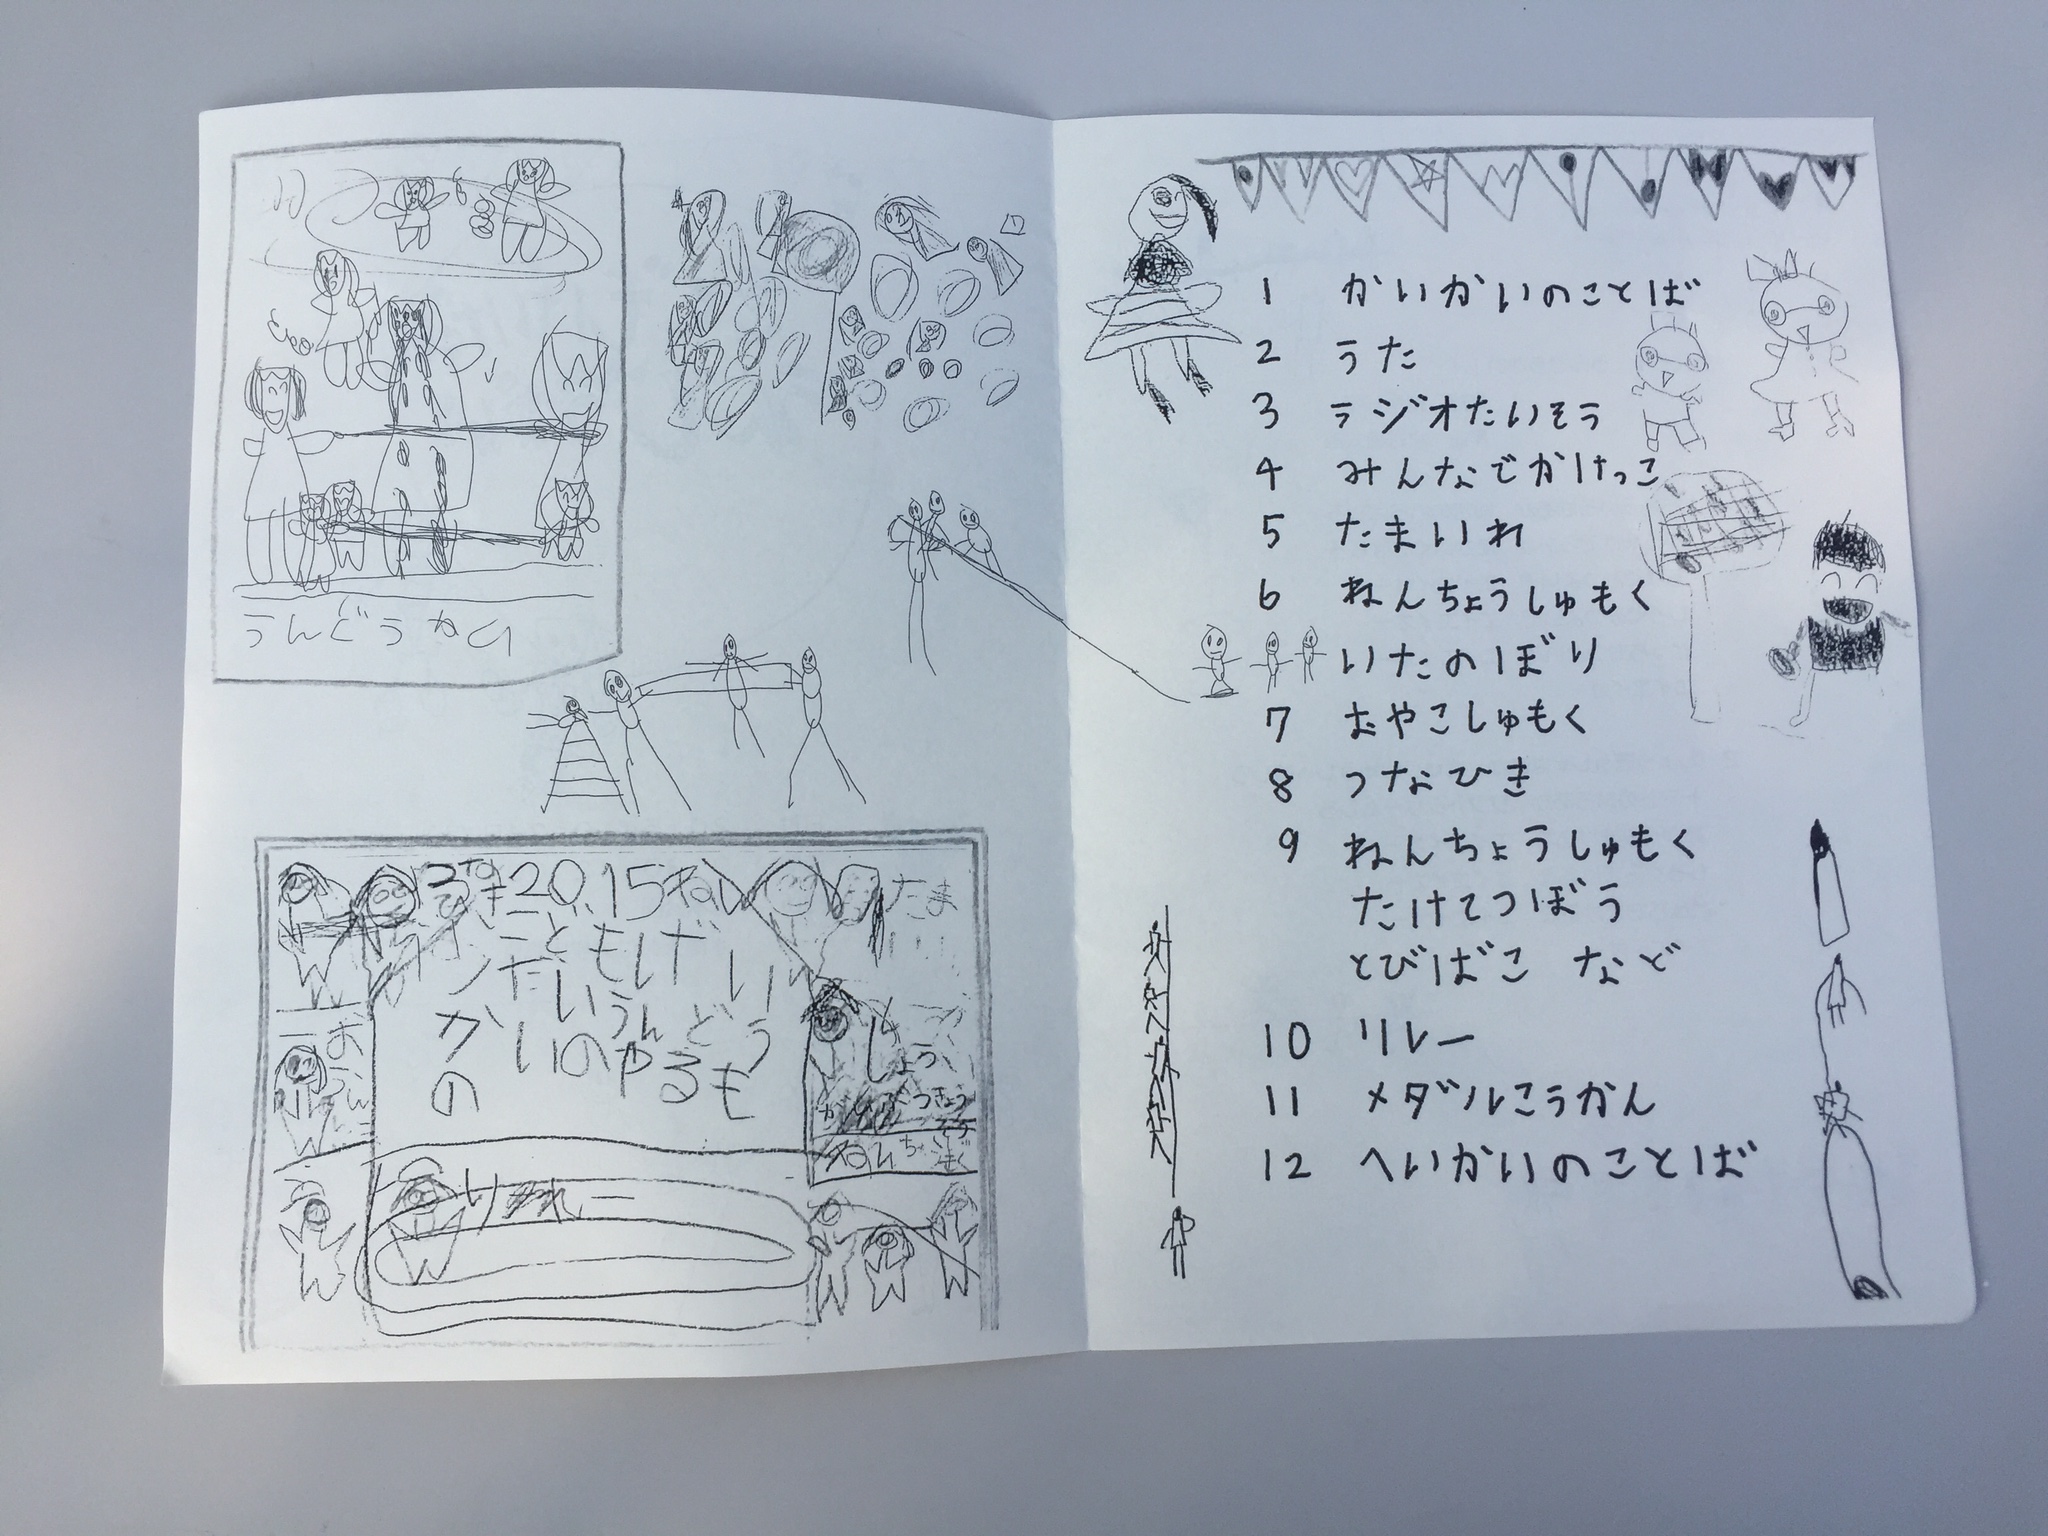 うんどうかい
2015ねん
こどもげい
うんどう
かいのやるも
の
おにごっこ
たま
リレー
1 かいかいのことば
2 うた
3 ラジオたいそう
4 みんなでかけっこ
5 たまいれ
6 ねんちょうしゅもく
いたのぼり
7 おやこしゅもく
8 つなひき
9 ねんちょうしゅもく
たけてつぼう
とびばこ など
10 リレー
11 メダルこうかん
12 へいかいのことば